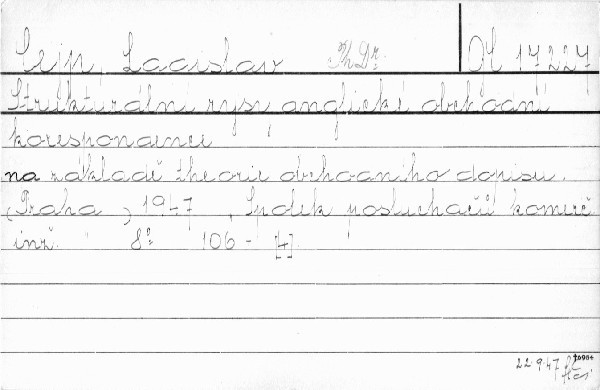 Cejp, Ladislav ThDr. OH 17227
Strukturální rysy anglické obchodní
korespondence
na základě theorie obchodního dopisu.
(Praha) 1947, Spolek posluchačů komerč.
inž. 8° 106 - [4].
22.9.47